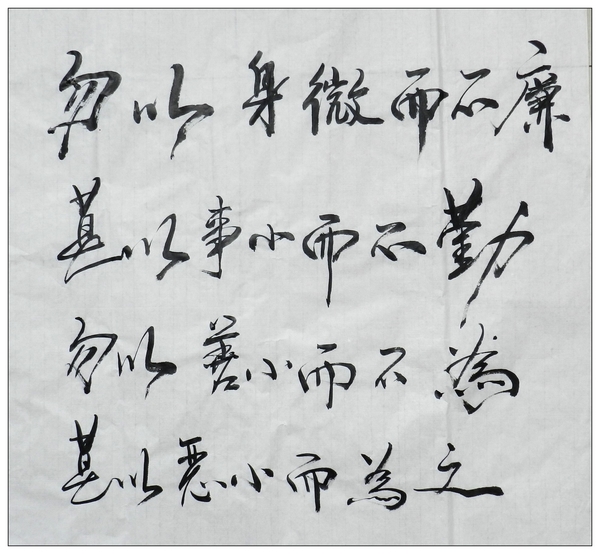 勿以身微而不廉
莫以事小而不勤
勿以善小而不為
莫以恶小而為之